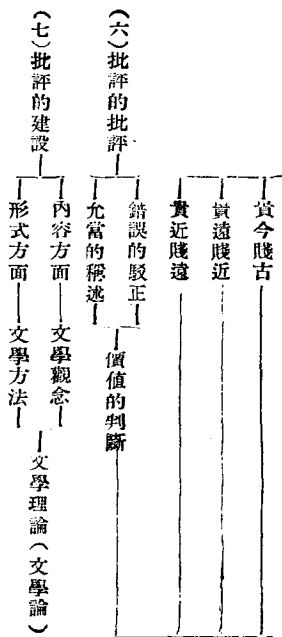 貴今賤古
貴遠賤近
貴近賤遠
(六)批評的批評
錯誤的駁正
允當的稱述
價值的判斷
(七)批評的建設
內容方面
文學觀念
形式方面
文學方法
文學理論(文學論)